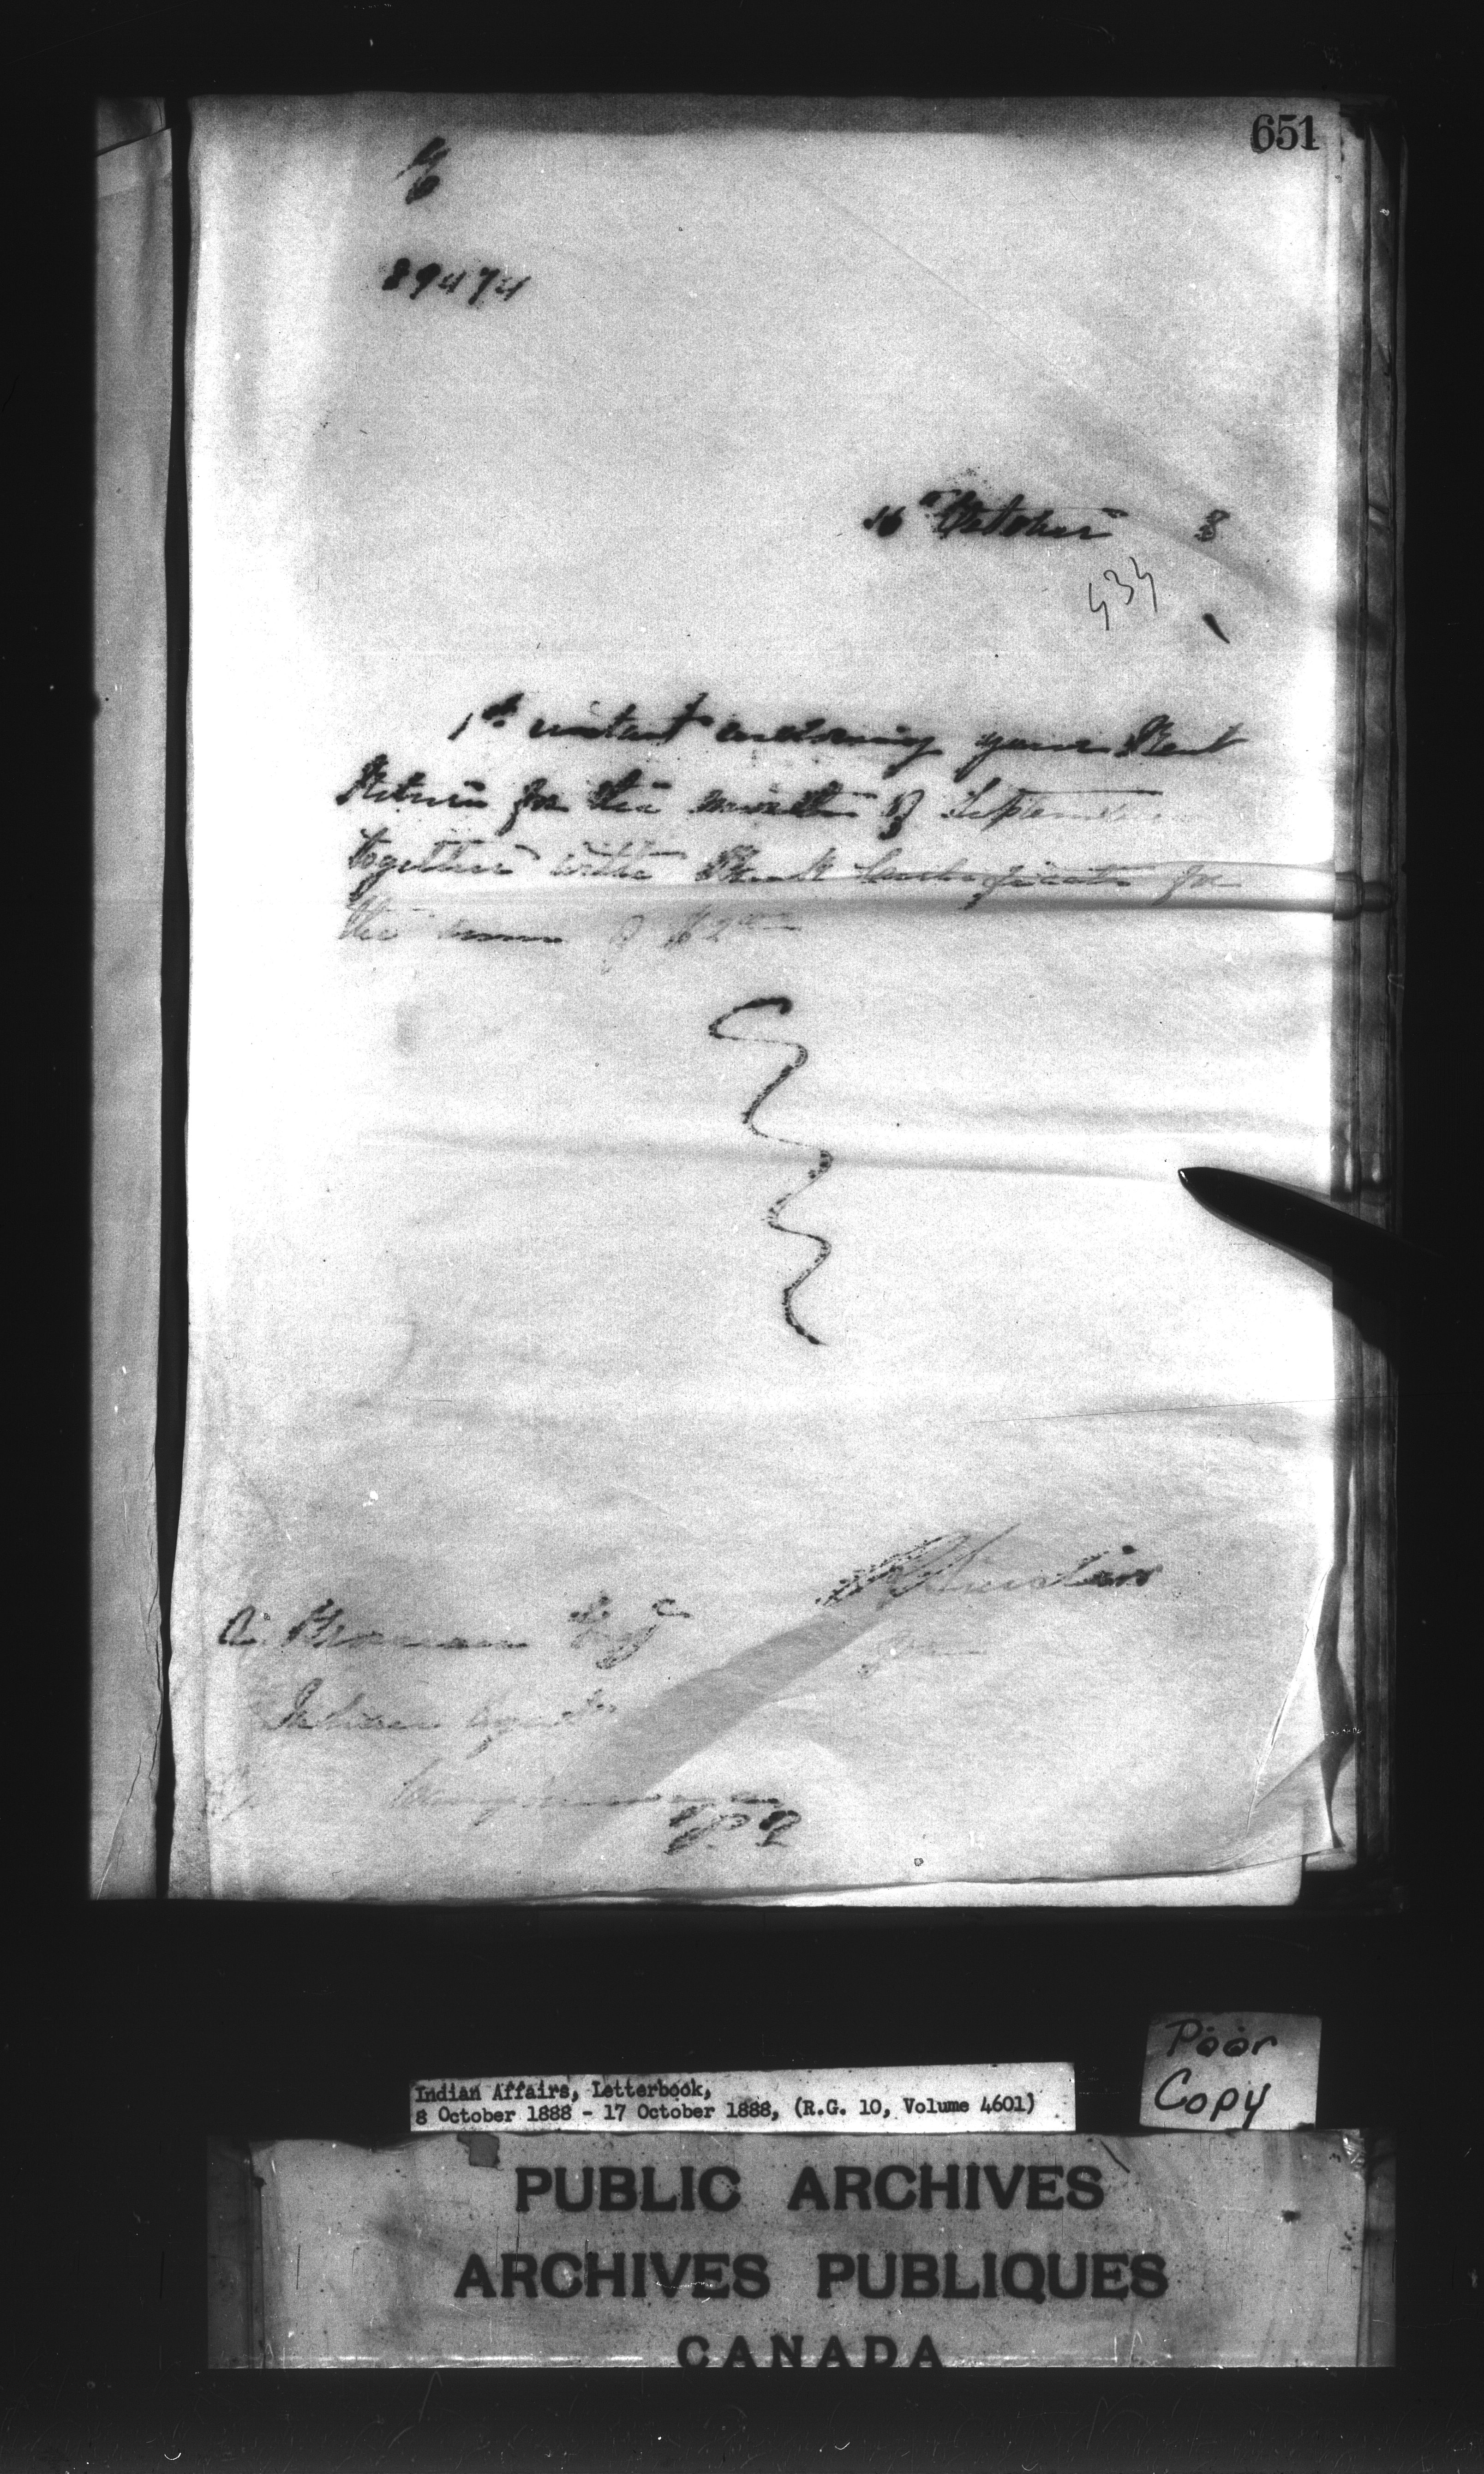 651
89474
16th October 8
434
1st instant enclosing your Rent
Return for the month of September
together with Bank Certificate for
the sum of $2
A. Brosseau Esq
Indian Agent
Caughnawaga
P Q
Poor
Copy
Indian Affairs, Letterbook,
8 October 1888 - 17 October 1888, (R.G. 10, Volume 4601)
PUBLIC ARCHIVES
ARCHIVES PUBLIQUES
CANADA